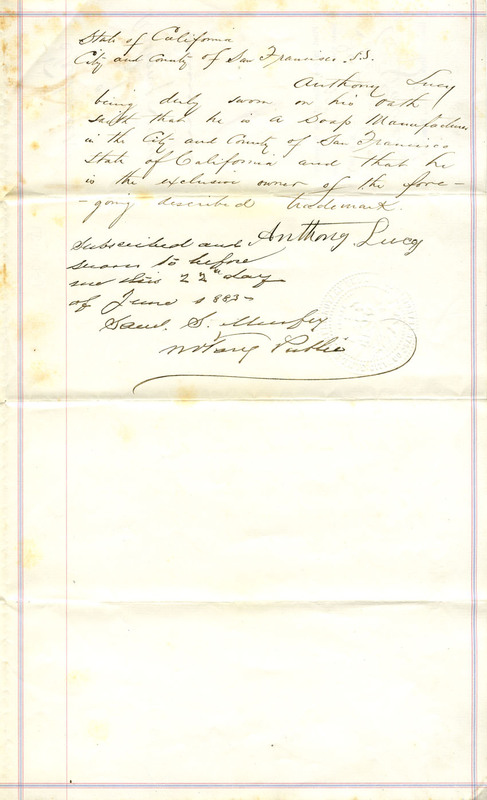 State of California
City and County of San Francisco S.S.
Anthony Lucy
being duly sworn on his oath
saith that he is a Soap Manufacturer
in the City and County of San Francisco
State of California and that he
is the exclusive owner of the fore-
-going described trademark.
Anthony Lucy
Subscribed and
sworn to before
me this 22nd day
of June 1883-
Saml. S. Murfey
Notary Public